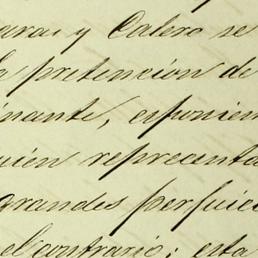 aras y Calero se
la pretencion de
inante, esponien
uien reprecenta
grandes perjuici
el contrario; esta